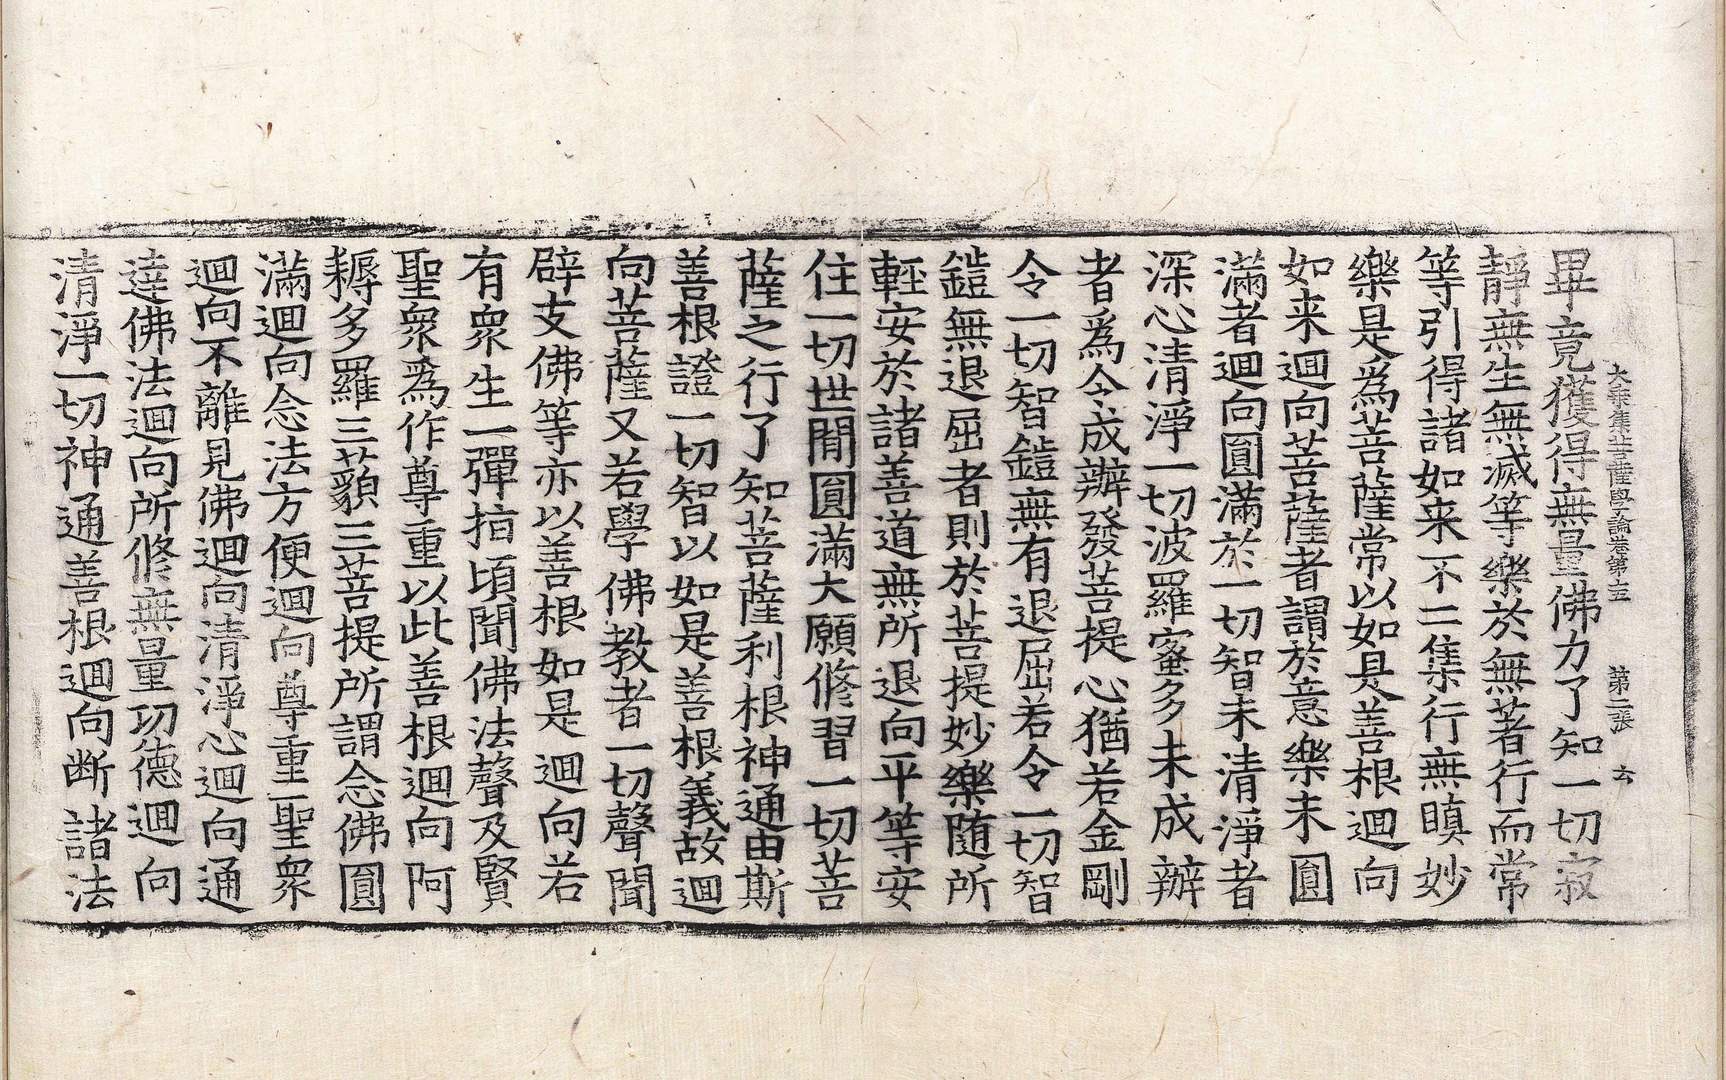 大乘集菩薩學論卷第十三 第二張 去
畢竟獲得無量佛力了知一切寂
靜無生無滅等樂於無著行而常
等引得諸如来不二集行無瞋妙
樂是爲菩薩常以如是善根迴向
如来迴向菩薩者謂於意樂未圓
滿者迴向圓滿於一切智未清淨者
深心清淨一切波羅蜜多未成辦
者爲令成辦發菩提心猶若金剛
令一切智鎧無有退屈若令一切智
鎧無退屈者則於菩提妙樂随所
輕安於諸善道無所退向平等安
住一切世間圓滿大願修習一切菩
薩之行了知菩薩利根神通由斯
善根證一切智以如是善根義故迴
向菩薩又若學佛教者一切聲聞
辟支佛等亦以善根如是迴向若
有衆生一彈指頃聞佛法聲及賢
聖衆爲作尊重以此善根迴向阿
耨多羅三藐三菩提所謂念佛圓
滿迴向念法方便迴向尊重聖衆
迴向不離見佛迴向清淨心迴向通
達佛法迴向所修無量功德迴向
清淨一切神通善根迴向断諸法